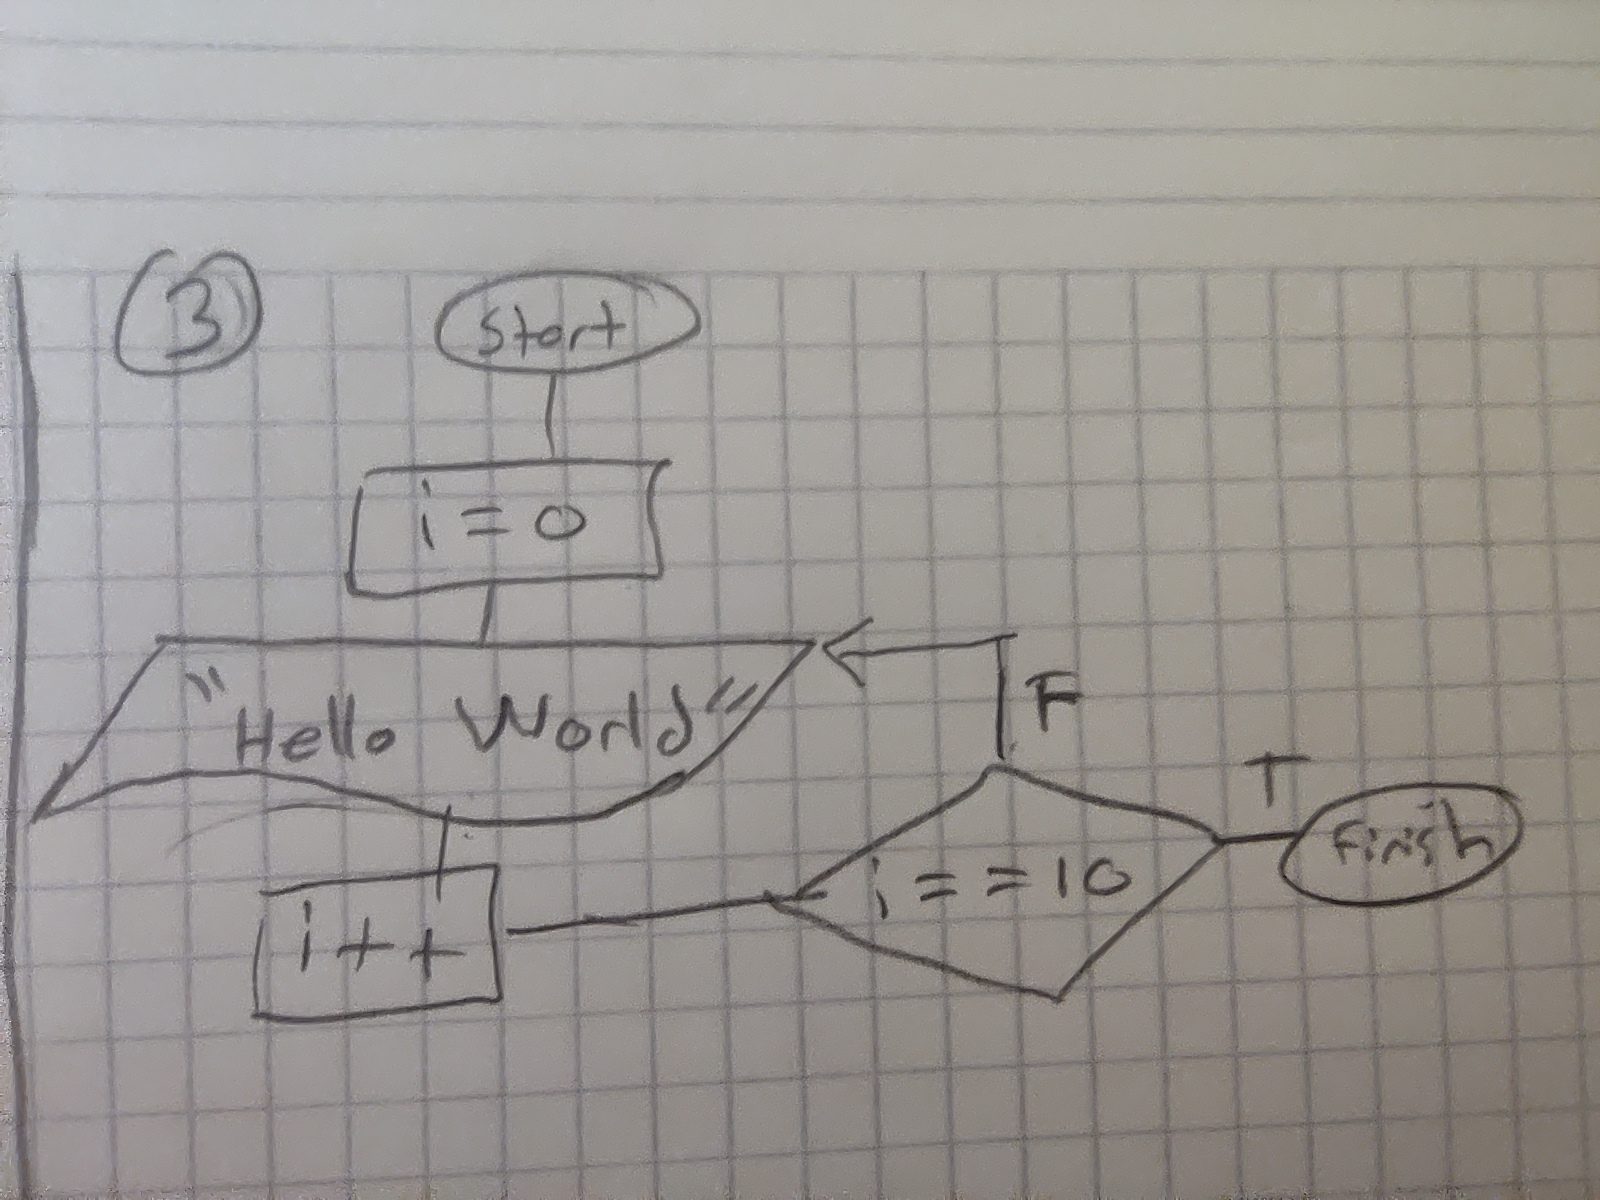 3
Start
i = 0
"Hello World"
F
T
i = = 10
Finish
i + +